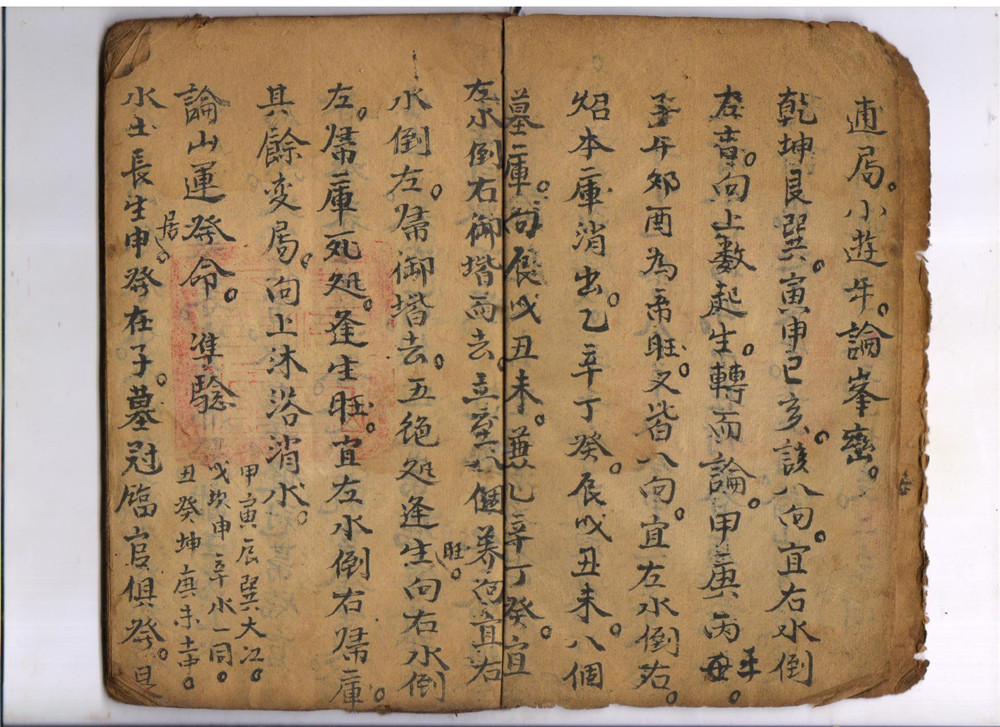 逋局。小遊年。論峯巒。
乾坤艮巽。寅申巳亥。該八向。宜右水倒
左。音。向上數起生。轉而論。甲庚丙壬。
子午卯酉為帝旺。又皆八向。宜左水倒右。
炤本庫消出。乙辛丁癸。辰戌丑未。八個
墓庫。向辰戌丑未。兼乙辛丁癸。宜
左水倒右御堦而去。立 八個養向宜右
水倒左。歸御堦去。五絶処逢生旺。向右水倒
左。歸庫死処。逢生旺。宜左水倒右歸庫。
其餘変局。向上沐浴消水。
論山運發命。準驗
甲寅辰巽大江。
戌坎申辛水一同。
丑癸坤庚未土中。
水土長生居申。發在子。墓冠臨官俱發。旦